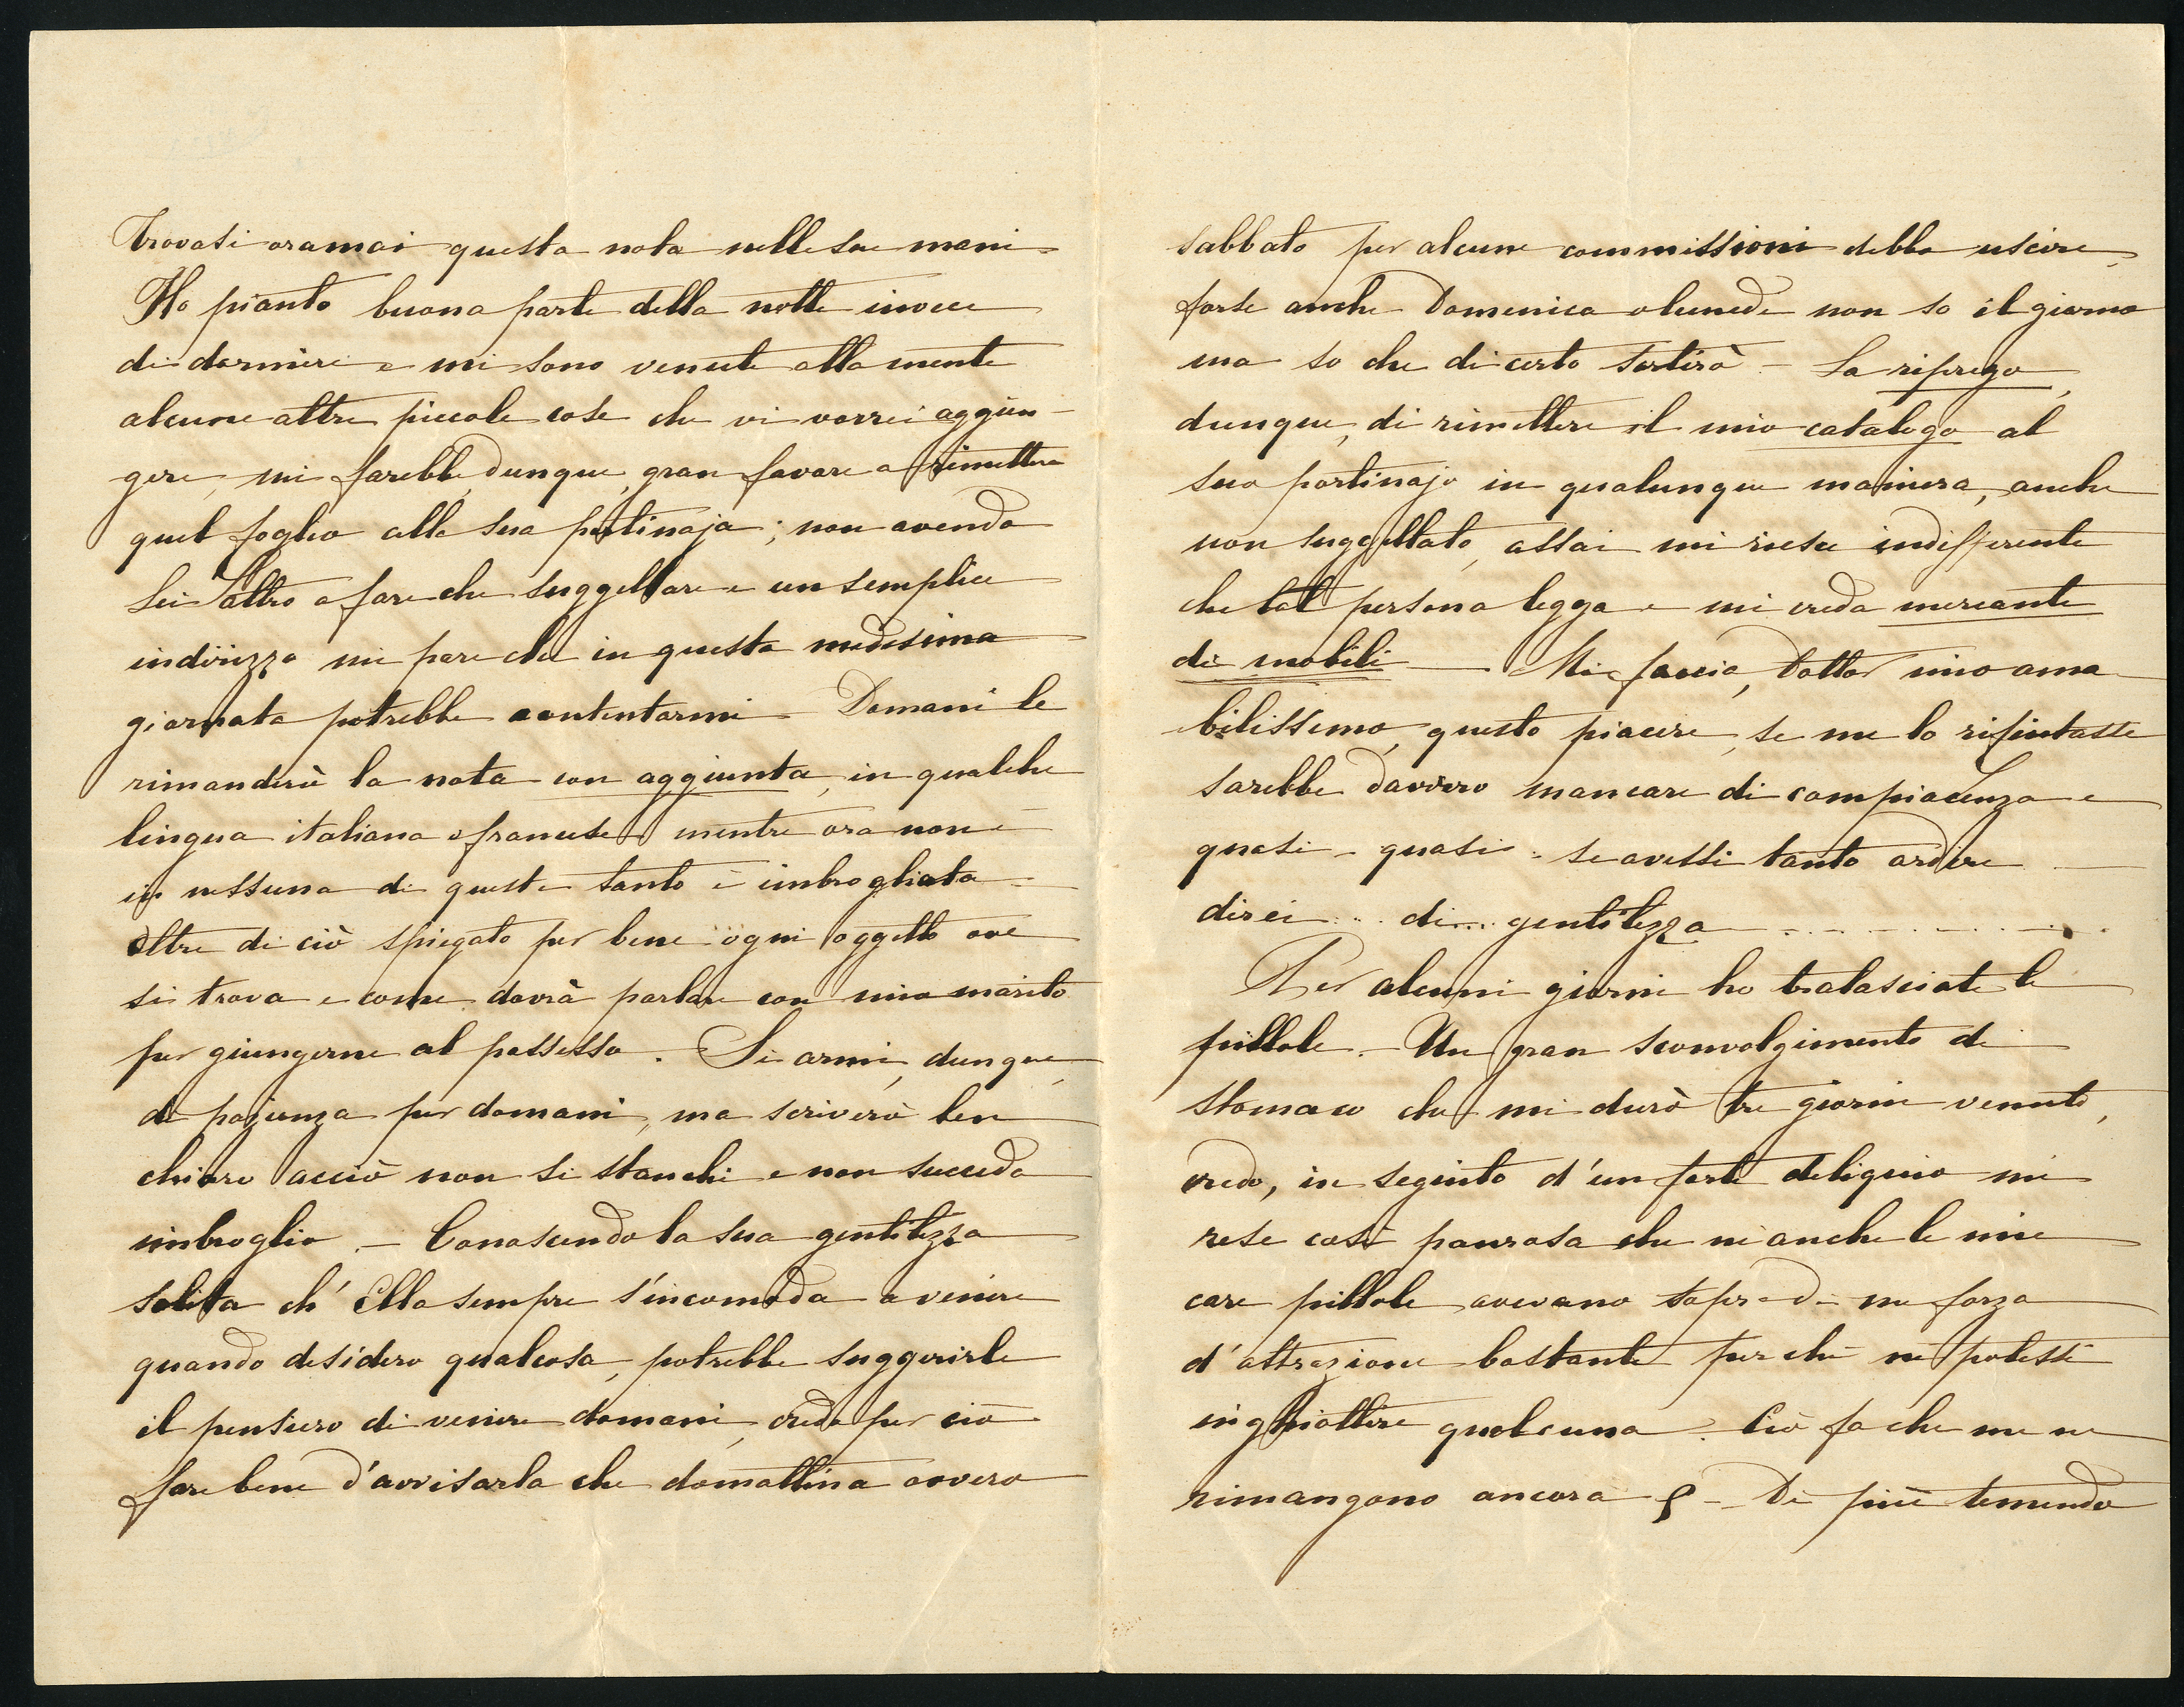 trovasi oramai questa nota nelle sue mani –
Ho pianto buona parte della notte invece
di dormire e mi sono venute alla mente
alcune altre piccole cose che vi vorrei aggiun-
gere, mi farebbe, dunque, gran favore a rimettere
quel foglio alla sua portinaja; non avendo
Lei altro a fare che suggellare e un semplice
indirizzo mi pare che in questa medesima
giornata potrebbe contentarmi – Domani le
rimanderò la nota con aggiunta, in qualche
lingua italiana o francese mentre ora non è
in nessuna di queste tanto è imbrogliata –
oltre di ciò spiegato per bene ogni oggetto ove
si trova e come dovrà parlare con mio marito
per giungerne al possesso. Si armi, dunque,
di pazienza per domani, ma scriverò ben
chiaro acciò non si stanchi e non succeda
imbroglio. – Conoscendo la sua gentilezza
solita ch' Ella sempre s'incomoda a venire
quando desidero qualcosa, potrebbe suggerirle
il pensiero di venire domani, credo per ciò
fare bene d'avvisarla che domattina ovvero
sabbato per alcune commissioni debbo uscire,
forse anche Domenica o lunedì non so il giorno
ma so che di certo sortirò – La riprego,
dunque, di rimettere il mio catalogo al
suo portinajo in qualunque maniera, anche
non suggellato, assai mi riesce indifferente
che tal persona legga e mi creda mercante
di mobili — Mi faccia, Dottor mio ama-
bilissimo, questo piacere, se me lo rifiutasse
sarebbe davvero mancare di compiacenza e
quasi - quasi - se avessi tanto ardire —
direi ... di ... gentilezza . . . . . . . . .
Per alcuni giorni ho tralasciate le
pillole. – Un gran sconvolgimento di
stomaco che mi durò tre giorni venuto,
credo, in seguito d'un forte deliquio mi
rese così paurosa che nè anche le mie
care pillole avevano sopra di me forza
d'attrazione bastante perchè ne potessi
inghiottire qualcuna. Ciò fa che me ne
rimangono ancora – Di più temendo